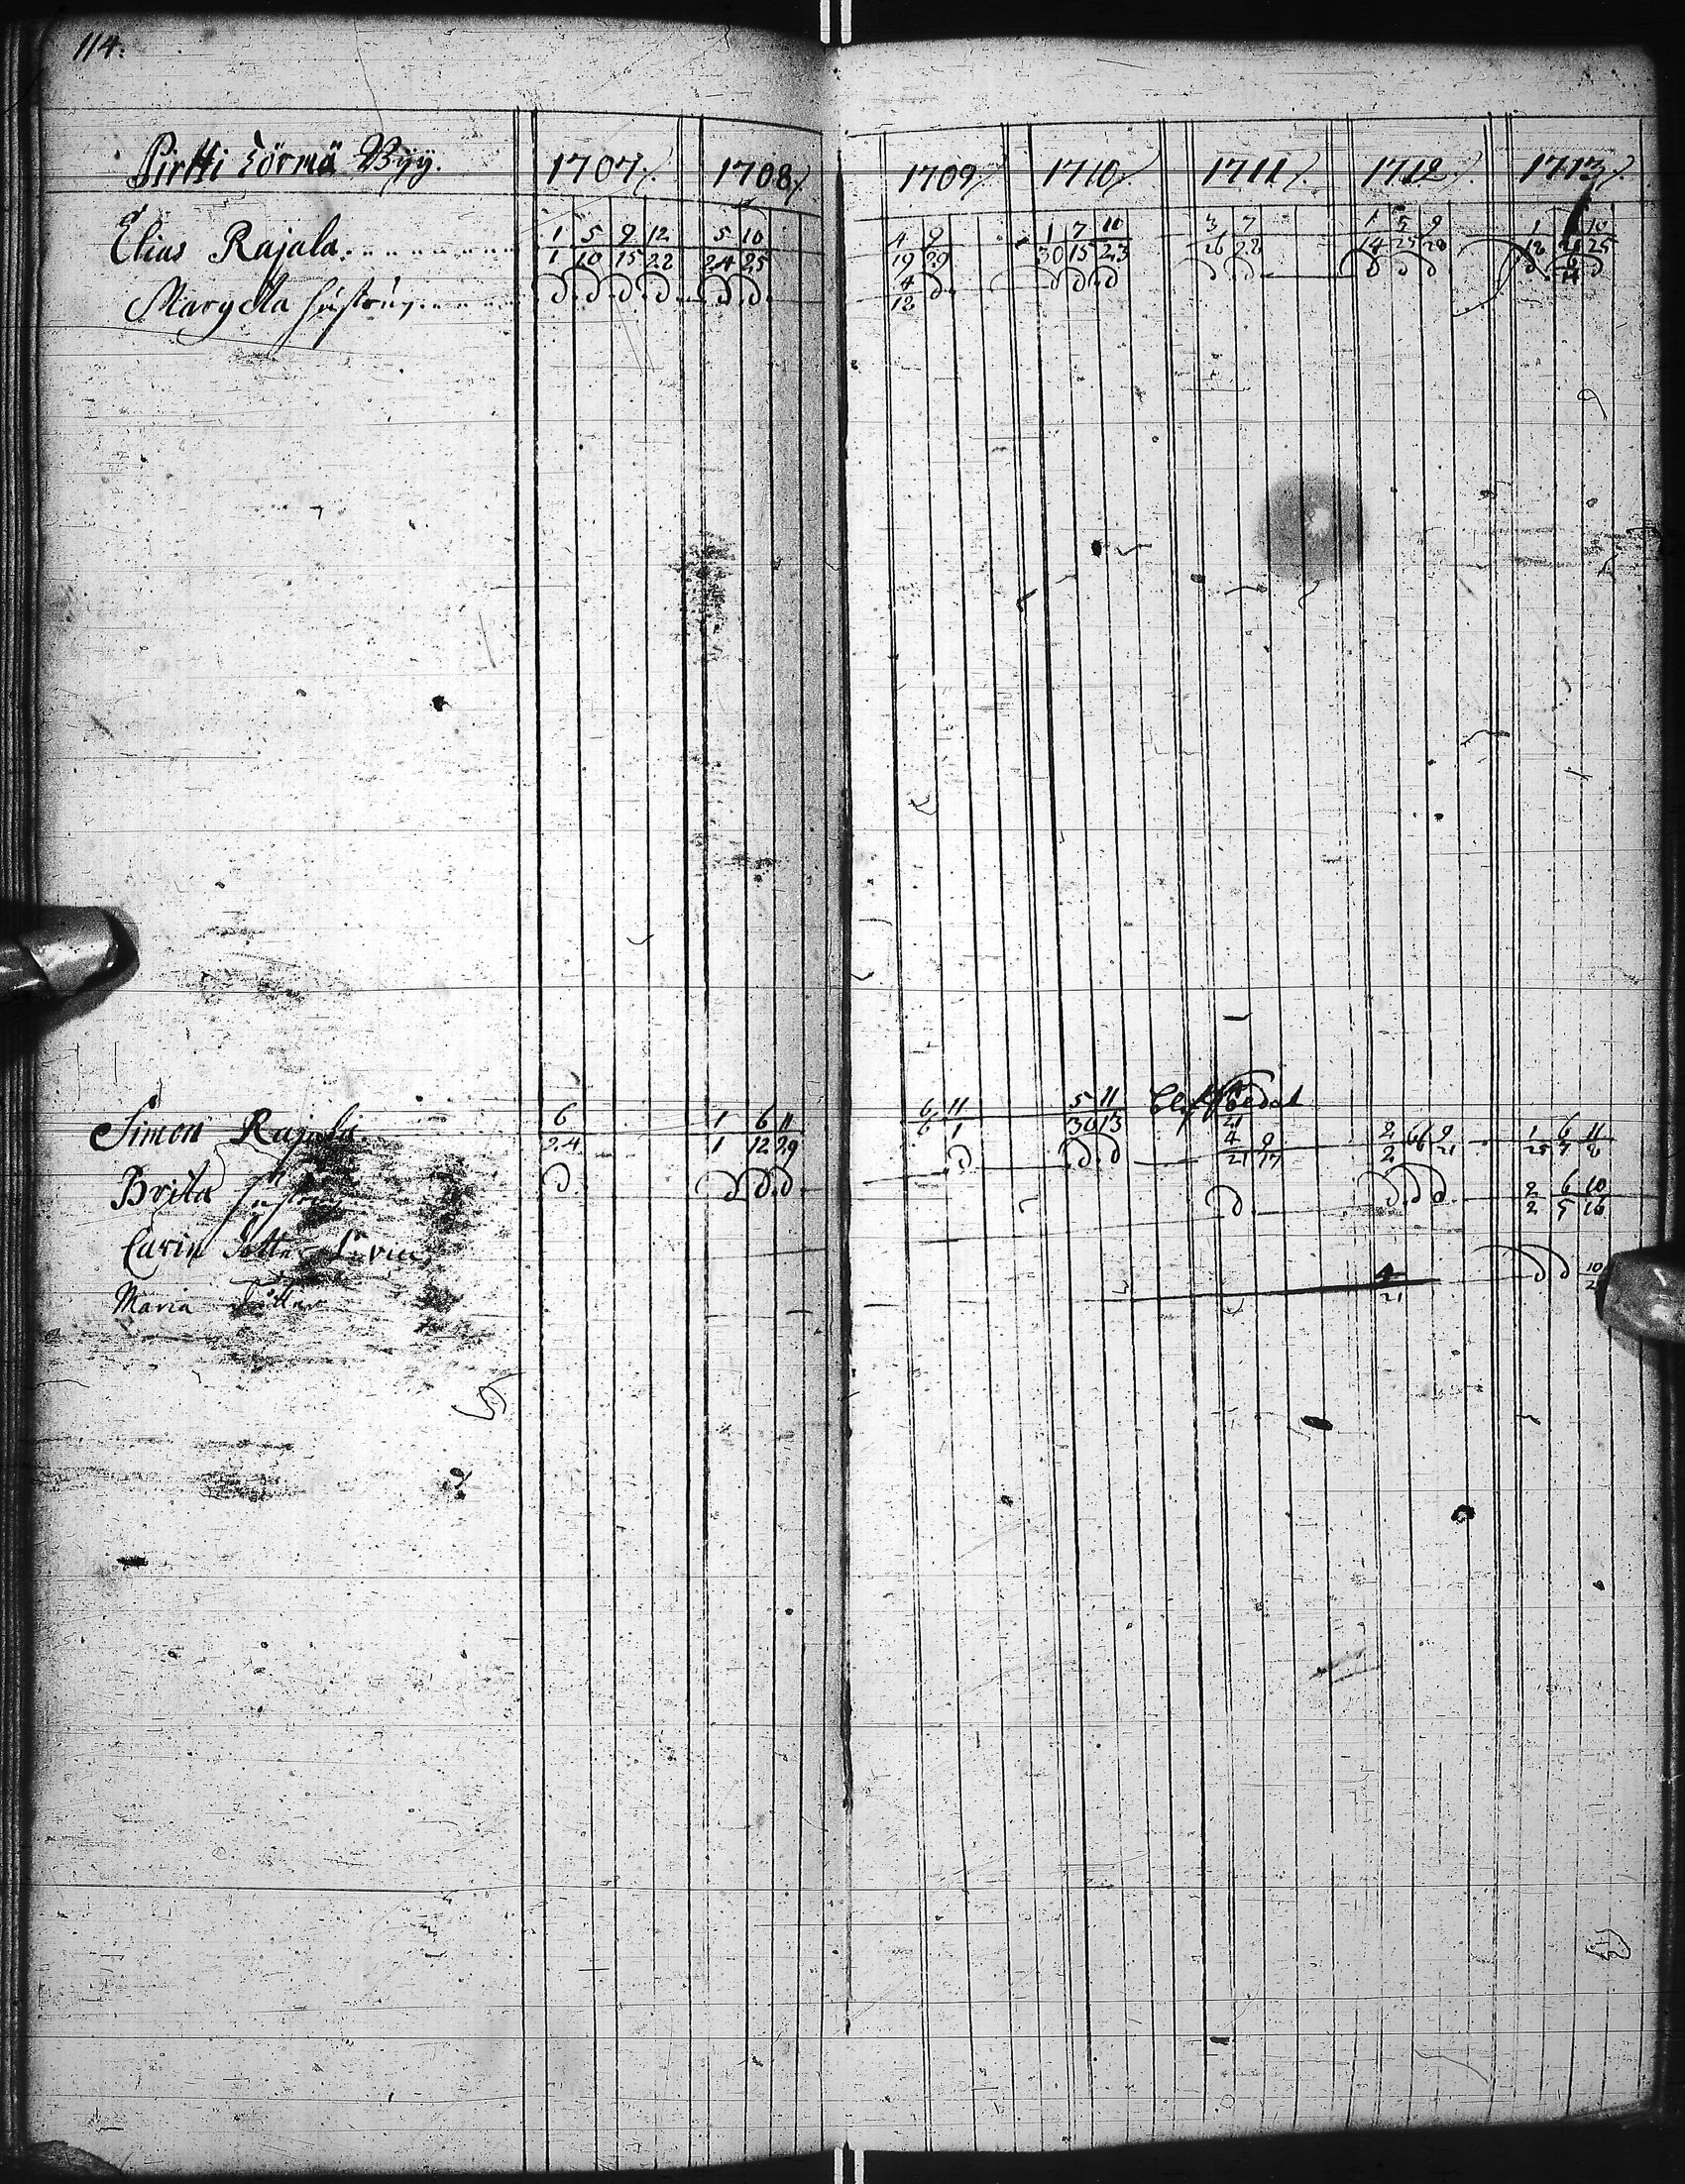 114.
Pirtti Törmä Byÿ. 1707. 1708. 1709. 1710. 1711. 1712. 1713.
Elias Rajala. 1 5 9 12 5 10 4 9 1 7 10 3 7 1 5 9 1 10
1 10 15 22 24 25 19 29 30 15 23 26 22 14 25 28 18 25
Margeta hustru. D. D. D. D. D. D. 4 D. D D D D D D D D D D
12 14
Simon Rajala. 6 1 6 11 6 11 5 11
24 1 12 29 6 1 30 13 21
Brita hustru D. D D. D. D D. D 4 9 2 6 9 1 6 11
21 17 2 6 21 25 7 8
Carin Dotter D D D D 2 6 10
2 5 16
Maria Dotter 4 D D 10
21